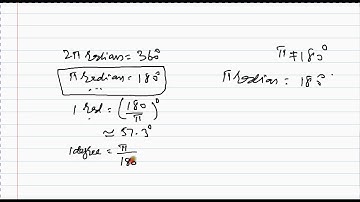 2π radian = 360°
π radian = 180°
1 rad = (180/π)°
≃ 57.3°
1 degree = π/180
π ≠ 180°
π radian = 180°